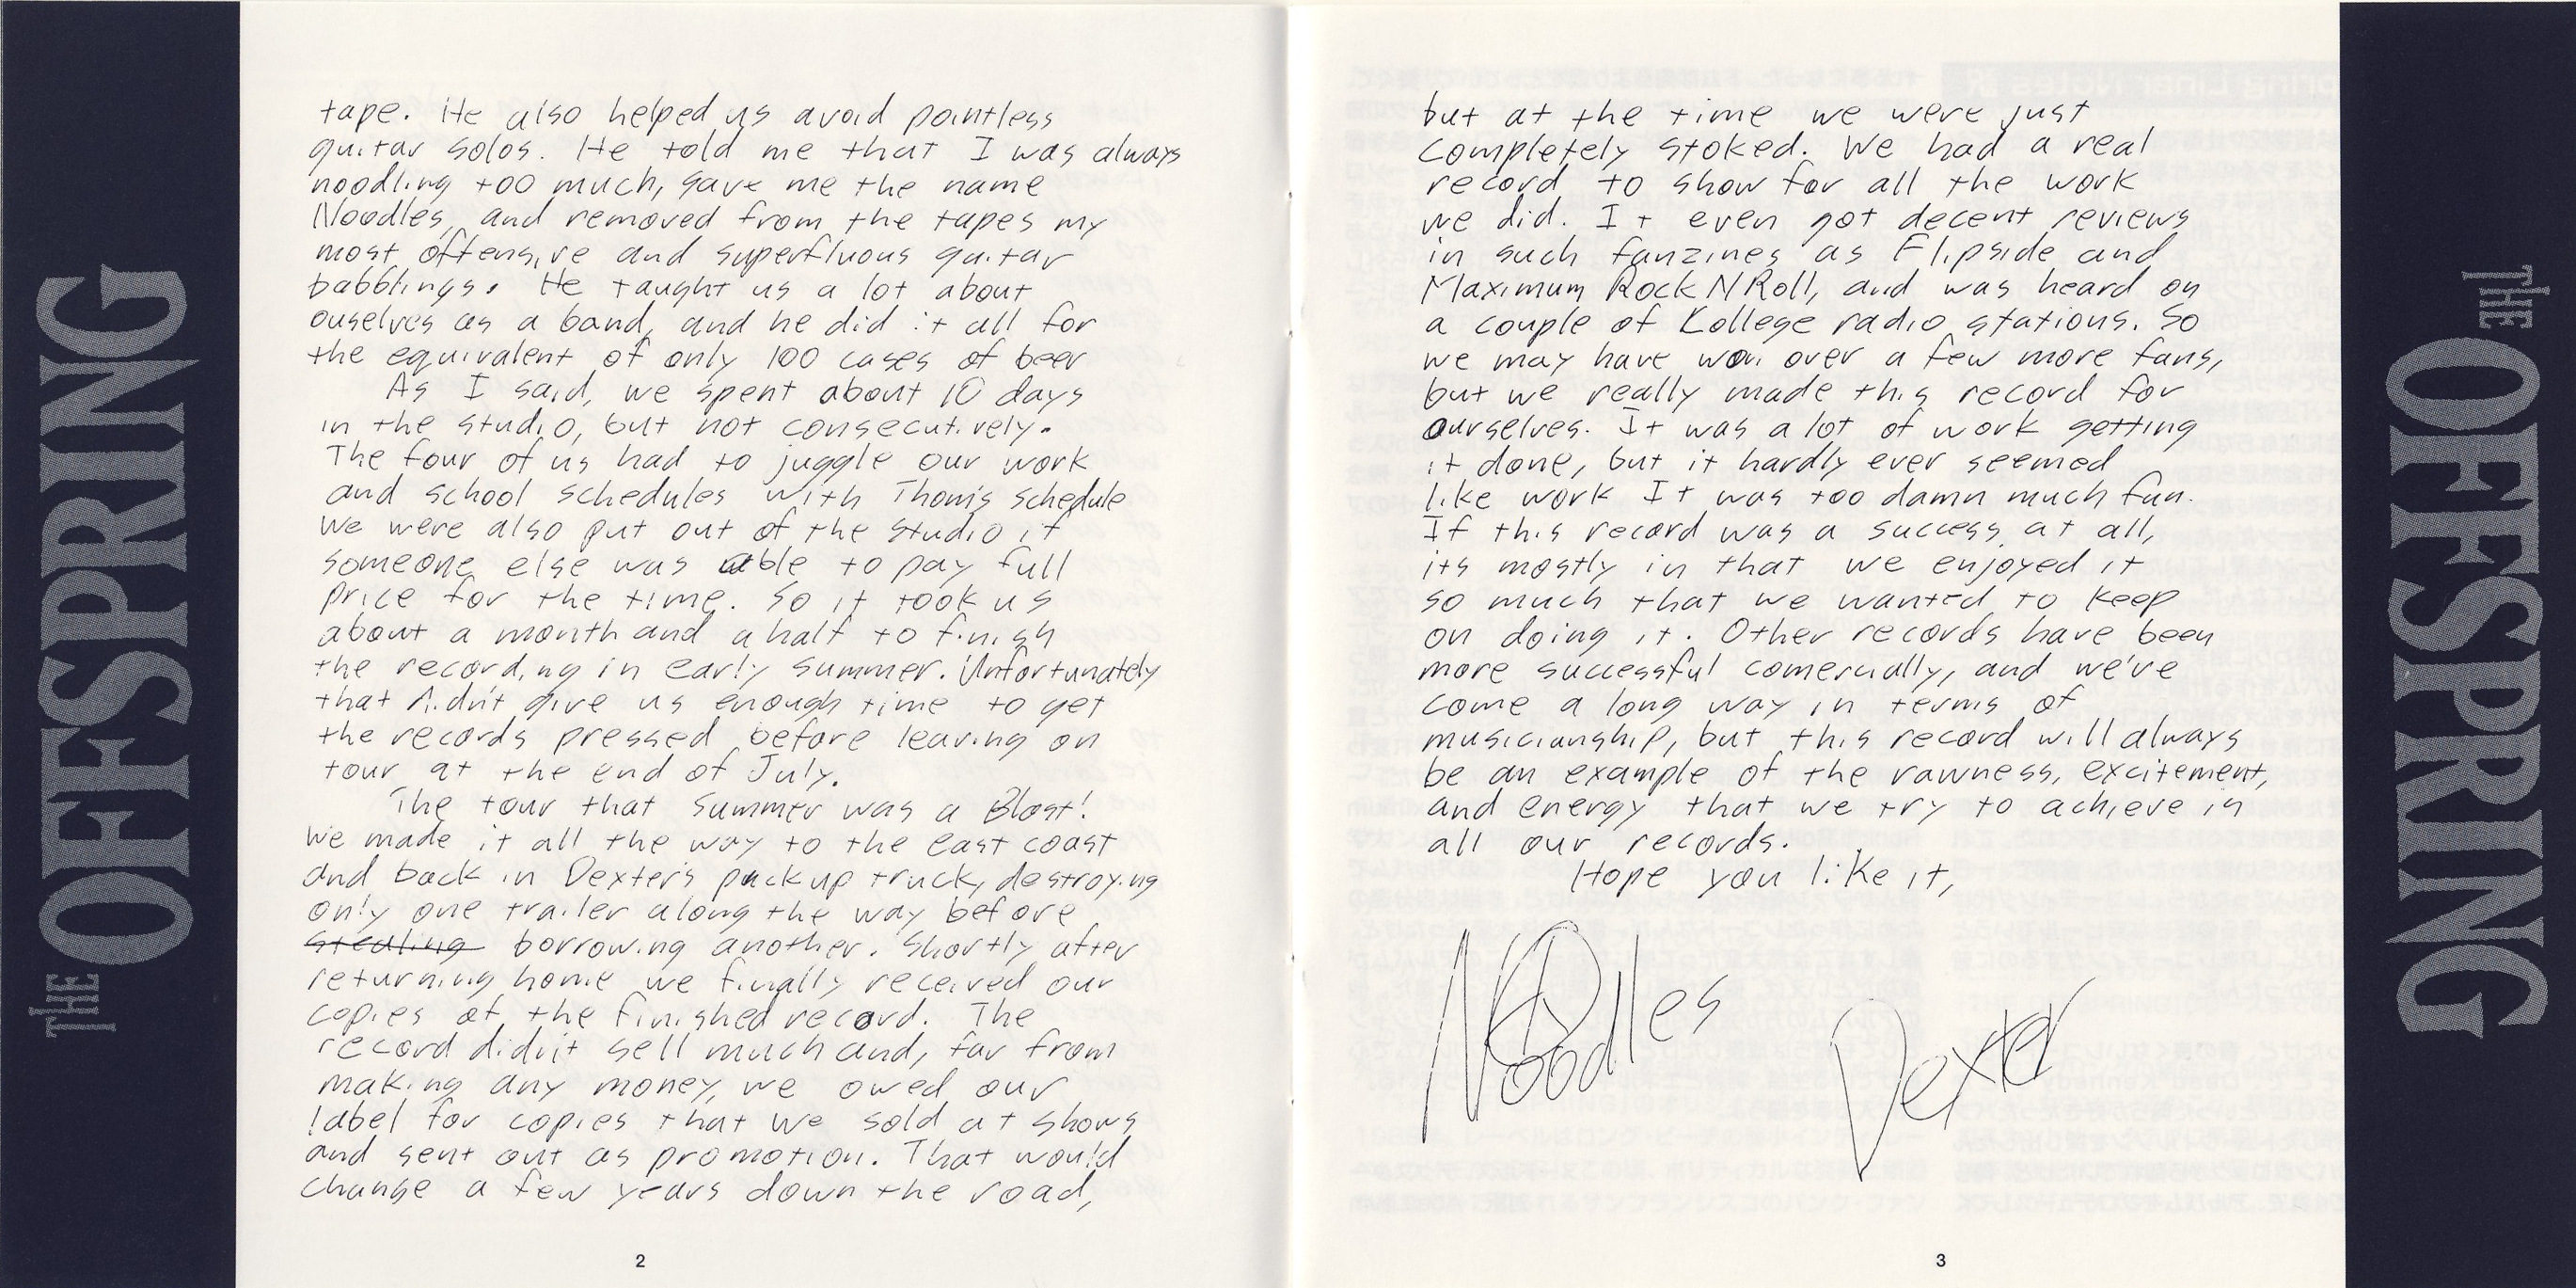 THE OFFSPRING
tape. He also helped us avoid pointless
guitar solos. He told me that I was always
noodling too much, gave me the name
Noodles, and removed from the tapes my
most offensive and superfluous guitar
babblings. He taught us a lot about
ouselves as a band, and he did it all for
the equivalent of only 100 cases of beer
As I said, we spent about 10 days
in the studio, but not consecutively.
The four of us had to juggle our work
and school schedules with Thom's schedule
We were also put out of the studio if
someone else was able to pay full
price for the time. So it took us
about a month and a half to finish
the recording in early summer. Unfortunately
that didn't give us enough time to get
the records pressed before leaving on
tour at the end of July.
The tour that summer was a Blast!
We made it all the way to the east coast
and back in Dexter's pickup truck, destroying
only one trailer along the way before
stealing borrowing another. Shortly after
returning home we finally received our
copies of the finished record. The
record didn't sell much and, far from
making any money, we owed our
label for copies that we sold at shows
and sent out as promotion. That would
change a few years down the road,
2
but at the time we were just
completely stoked. We had a real
record to show for all the work
we did. It even got decent reviews
in such fanzines as Flipside and
Maximum Rock N Roll, and was heard on
a couple of Kollege radio stations. So
we may have won over a few more fans,
but we really made this record for
ourselves. It was a lot of work getting
it done, but it hardly ever seemed
like work It was too damn much fun.
If this record was a success at all,
its mostly in that we enjoyed it
so much that we wanted to keep
on doing it. Other records have been
more successful comercially, and we've
come a long way in terms of
musicianship, but this record will always
be an example of the rawness, excitement,
and energy that we try to achieve in
all our records.
Hope you like it,
Noodles
Dexter
3
THE OFFSPRING